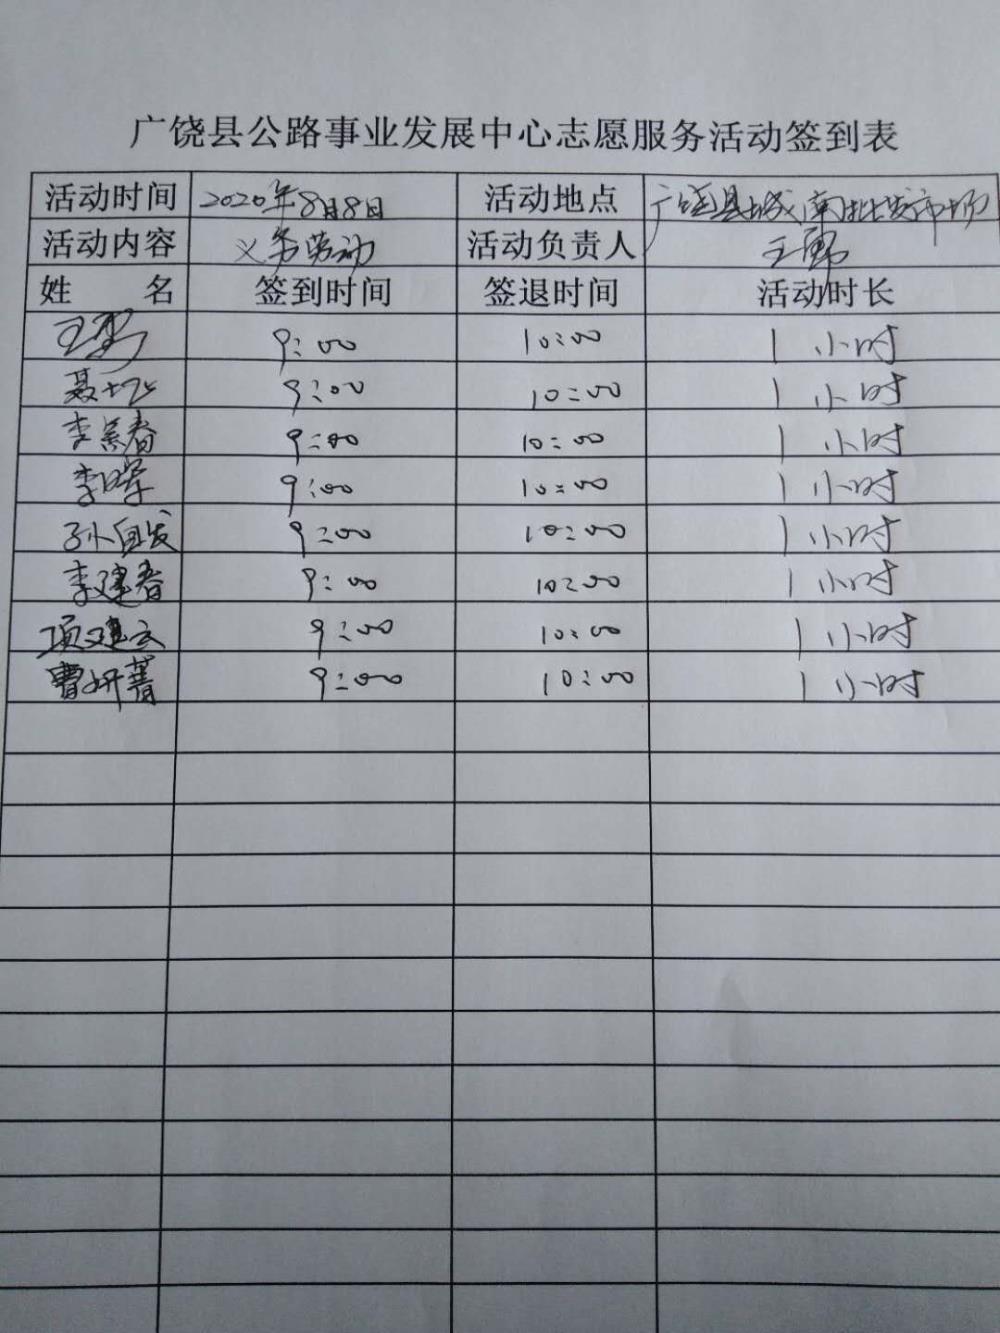 广饶县公路事业发展中心志愿服务活动签到表
活动时间 2020年8月8日 活动地点 广饶县城南批发市场
活动内容 义务劳动 活动负责人 王
姓 名 签到时间 签退时间 活动时长
王 9:00 10:00 1小时
聂 9:00 10:00 1小时
李 春 9:00 10:00 1小时
李 9:00 10:00 1小时
孙自发 9:00 10:00 1小时
李建春 9:00 10:00 1小时
项建云 9:00 10:00 1小时
曹妍菁 9:00 10:00 1小时